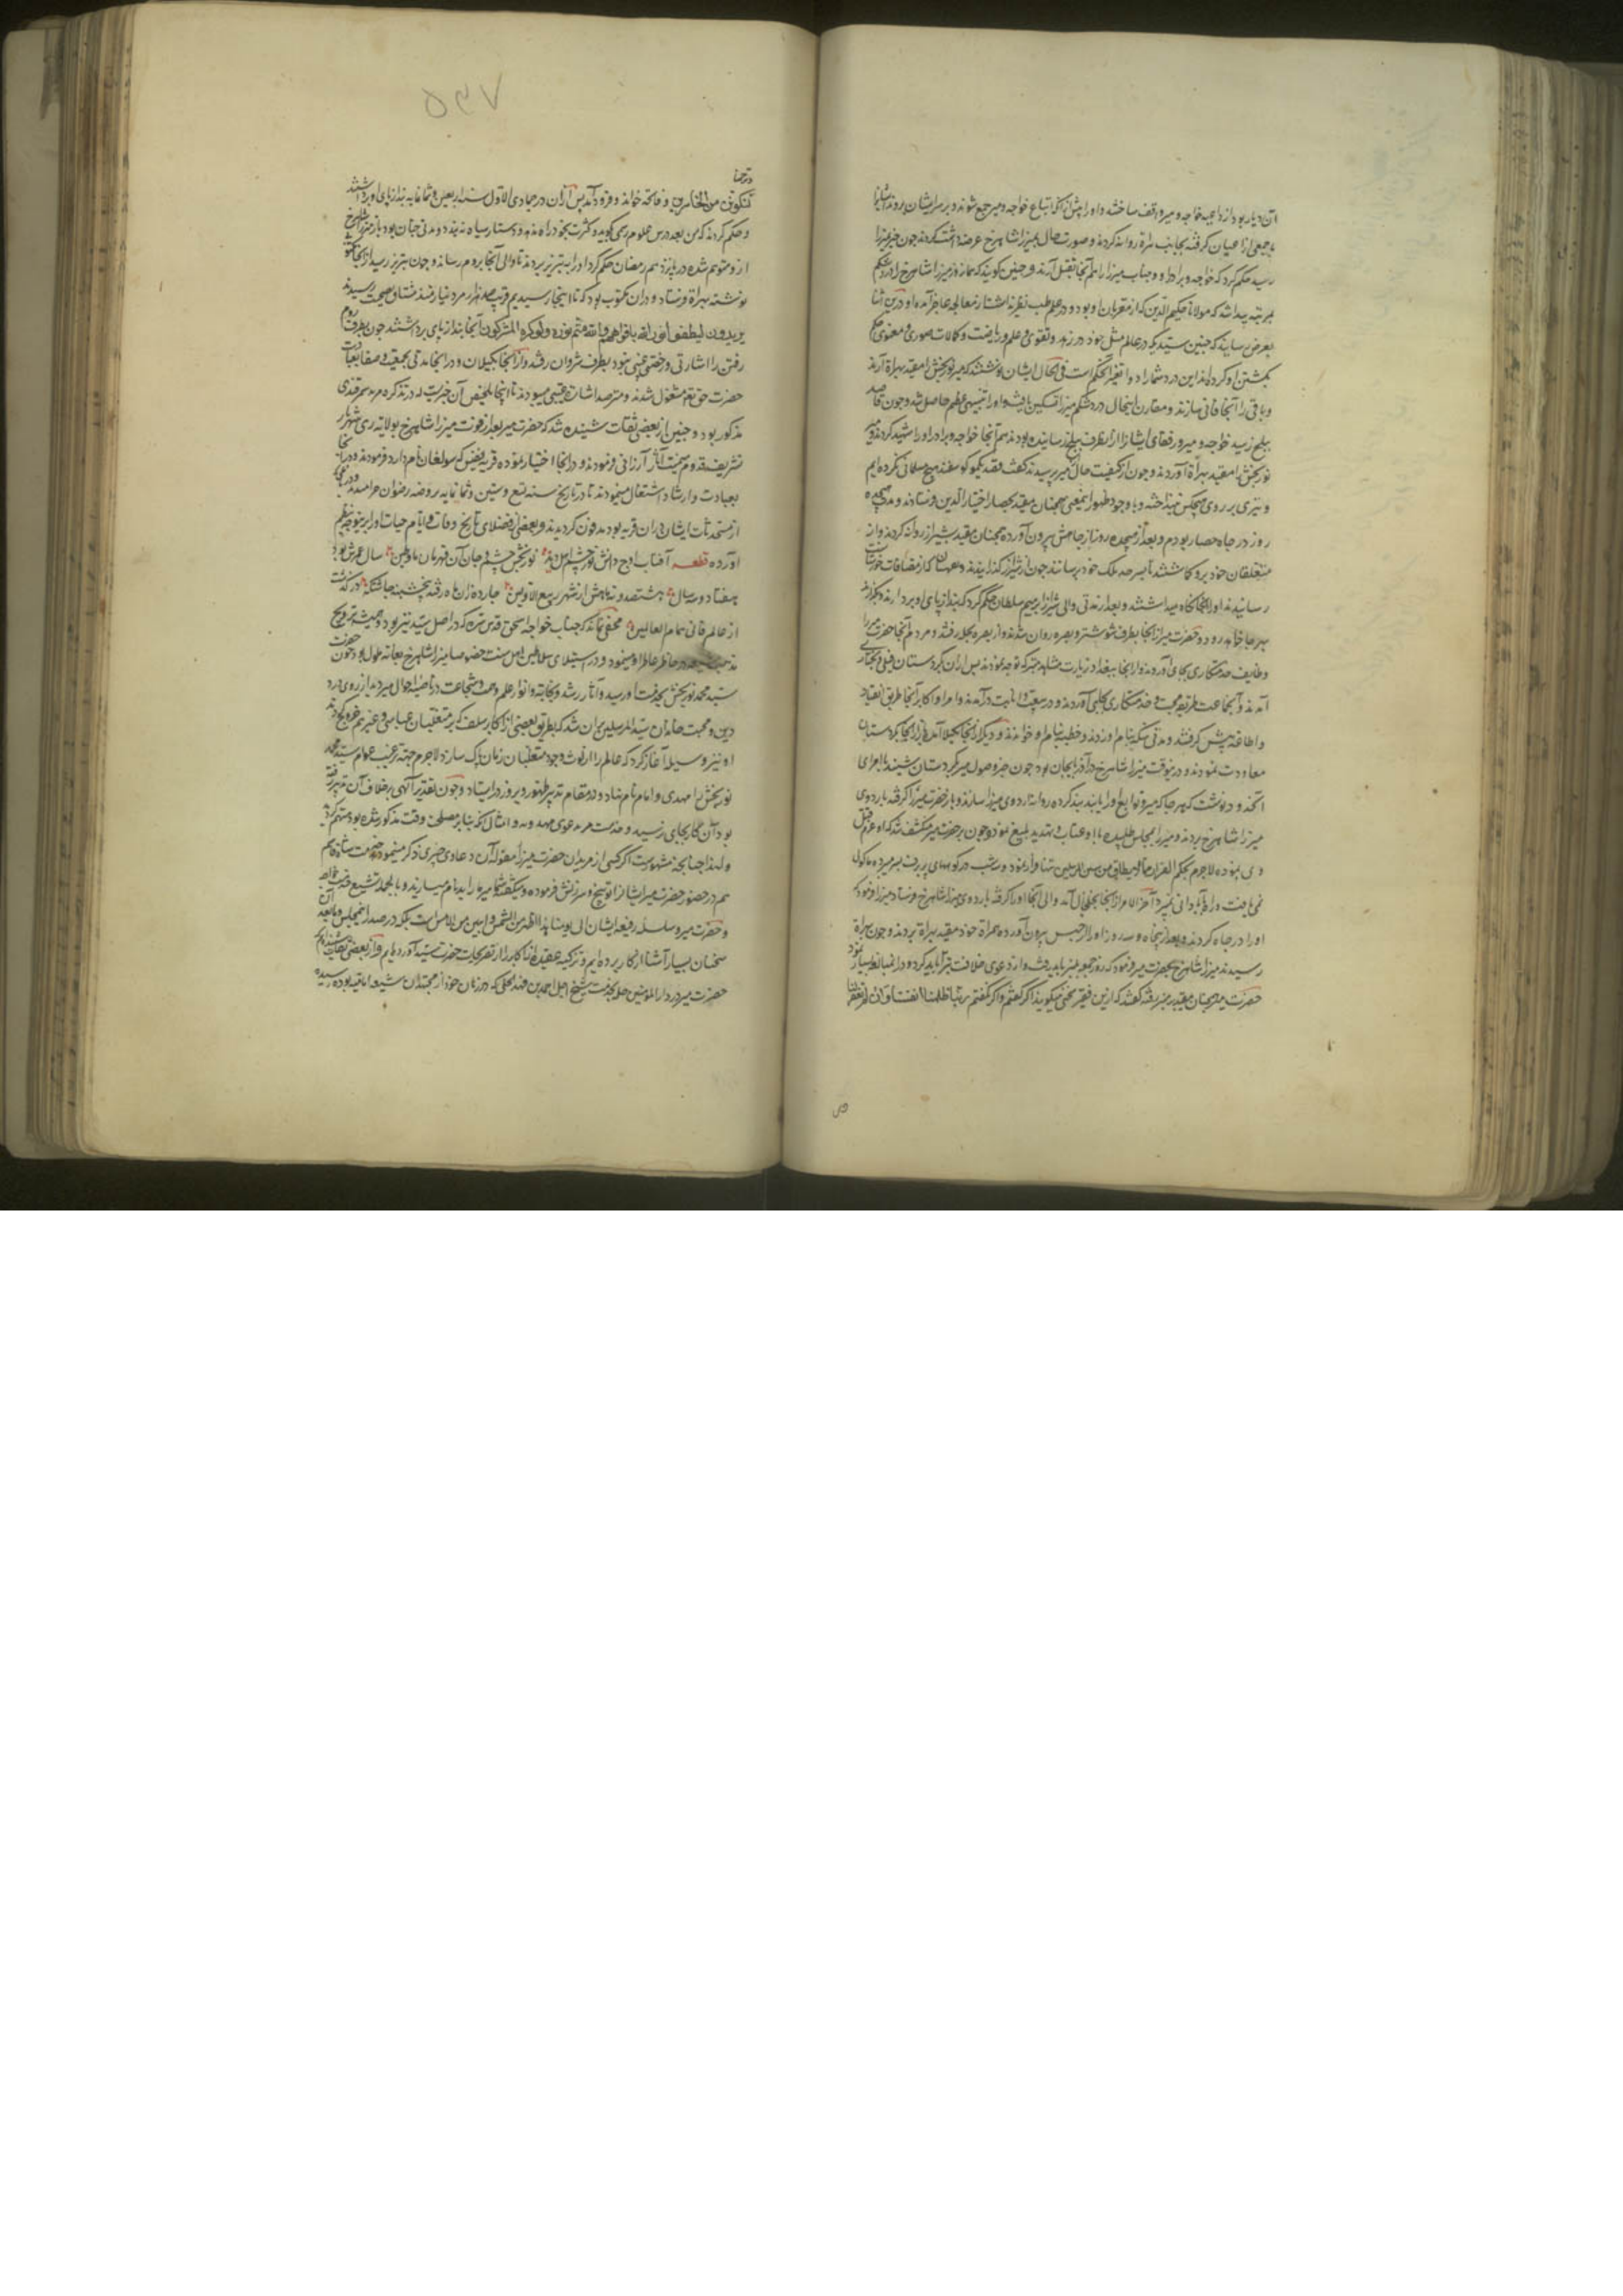 آن دیار بود از داعیه خواجه و میر واقف ساخته و او را پیش از آنکه اتباع خواجه و میر جمع شوند و بر سر ایشان روند ایشانرا
با جمعی از اعیان گرفته بجانب هراة روانه کردند و صورت حال بمیرزا شاهرخ عرضه داشت کردند چون خبر بمیرزا
رسید حکم کرد که خواجه و برادر او و جناب میرزا را هم آنجا بقتل آرند و چنین گویند که همان روز میرزا شاهرخ را درد شکم
بمرتبه پیدا شد که مولانا حکیم الدین که از مقربان او بود و در علم طب نظیر نداشت از معالجه عاجز آمد و در ین اثنا
بعرض رسانید که چنین سیدیکه در عالم مثل خود در زهد و تقوی و علم و ریاضت و کمالات صوری و معنوی حکم
بکشتن او کرده اند این درد شما را دوا تغیر آن حکم است فی الحال نشان نوشتند که میر نوربخش را مقید بهراة آرند
و باقی را آنجا فانی سازند و مقارن اینحال درد شکم میرزا تسکین یافت و او را تنبیهی عظیم حاصل شد و چون قاصد
ببلخ رسید خواجه و میر و رفقای ایشانرا از انطرف ببلخ رسانیده بودند هم آنجا خواجه و برادر او را شهید کردند و میر
نوربخش را مقید بهراة آوردند و چون از کیفیت حال میر پرسیدند گفت
و تیری بر روی هیچکس نینداخته و با وجود ظهور اینمعنی همچنان مقید بحصار اختیار الدین فرستادند و مدت هیجده
روز در چاه حصار بودم و بعد از هیجده روز از چاهش بیرون آورده همچنان مقید بشیراز روانه کردند و از
متعلقان خود برو گماشتند تا بسرحد ملک خود برسانند چون از شیراز گذرانیدند و بهبهان که از مضافات خوزستان
رسانیدند او را آنجا نگاه میداشتند و بعد از مدتی والی شیراز ابراهیم سلطان حکم کرد که بند از پای او بردارند و بگذارند
بهرجا خواهد رود و حضرت میر از آنجا بطرف شوشتر و بصره روان شدند و از بصره بحله رفتند و مردم آنجا حضرت میر را
وظایف خدمتکاری بجای آوردند و از آنجا ببغداد و زیارت مشاهد متبرکه توجه نمودند پس از آن بکردستان فیلی و بختیار
آمدند و آنجماعت طریقه محبت و خدمتکاری بجای آوردند و در بیعت و انابت در آمدند و امرا و اکابر آنجا طریق انقیاد
و اطاعت پیش گرفتند و مدتی سکه بنام او زدند و خطبه بنام او خواندند و دیگر از آنجا بگیلان آمد و باز از آنجا بکردستان
معاودت نمودند و در ینوقت میرزا شاهرخ در آذربایجان بود چون خبر وصول میر بکردستان شنید بامرای
آنحدود نوشت که بهر جا که میر و توابع او را یابند بند کرده روانه اردوی میرزا سازند و باز حضرت میر را گرفته باردوی
میرزا شاهرخ بردند و میر را بمجلس طلبیده با او عتاب و تهدید بلیغ نمود و چون بر حضرت میر منکشف شد که او عزم قتل
وی نموده لاجرم بحکم الفرار مما لا یطاق من سنن المرسلین تنها فرار نمود و سه شب در کوههای پر برف بسر میبرد و ماکول
نمی یافت و راه بآبادانی نمی برد آخر الامر از آنجا بخلخال آمد والی آنجا او را گرفته باردوی میرزا شاهرخ فرستاد میرزا فرمود که
او را در چاه کردند و بعد از پنجاه و سه روز او را از حبس بیرون آورده همراه خود مقید بهراة بردند و چون بهراة
رسیدند میرزا شاهرخ بحضرت میر فرمود که روز جمعه بمنبر باید رفت و از دعوی خلافت تبرا باید کرد و در انمبالغه بسیار نمود
حضرت میر همچنان مقید بر منبر رفته گفتند که ازین فقیر سخنی میگویند اگر گفتم و اگر نگفتم ربنا ظلمنا انفسنا و ان لم تغفر لنا
و ترحمنا
لنکونن من الخاسرین و فاتحه خواند و فرود آمد پس از آن در جمادی الاول سنه اربعین و ثمانمایه بند از پای او برداشتند
و حکم کردند که من بعد درس علوم رسمی گوید و کثرت بخود راه ندهد و دستار سیاه نبندد و مدتی چنان بود باز میرزا شاهرخ
ازو متوهم شده در پانزدهم رمضان حکم کرد او را به تبریز بردند تا والی آنجا بروم رساند و چون بتبریز رسید از آنجا مکتوب
نوشته بهراة فرستاد و در ان مکتوب بود که تا اینجا رسیدیم قریب صد هزار مرد نیازمند مشتاق صحبت رسیدند
یریدون لیطفئوا نور الله بافواههم و الله متم نوره و لو کره المشرکون آنجا بند از پای برداشتند چون بطرف روم
رفتن را اشارتی و رخصتی غیبی نبود بطرف شروان رفتند و از آنجا بگیلان و در آنجا مدتی بجمعیت و صفا بعبادت
حضرت حق تعالی مشغول شدند و مترصد اشارت غیبی میبودند تا اینجا تلخیص آن چیزیست که در تذکره محمد سمرقندی
مذکور بود و چنین از بعضی ثقات شنیده شد که حضرت میر بعد از فوت میرزا شاهرخ بولایت ری شهریار
تشریف قدوم میمنت آثار ارزانی فرمودند و در آنجا اختیار نموده قریه نفیس که سولغان نام دارد فرمودند و در آنجا
بعبادت و ارشاد اشتغال مینمودند تا در تاریخ سنه تسع و ستین و ثمانمایه بروضه رضوان خرامیدند و در باغی
از مستحدثات ایشان در ان قریه بود مدفون گردیدند و بعضی از فضلای تاریخ وفات و ایام حیات او را برینوجه بنظم
آورده قطعه آفتاب اوج دانش نور چشم اهل دید نوربخش چشم و جان آن قهرمان ماء و طین سال عمرش بود
هفتاد و سه سال هشتصد و نه شصت از شهر ربیع الاولین چارده زان ماه رفته پنجشنبه چاشتگه در گذشت
از عالم فانی تمام العالمین مخفی نماند که جناب خواجه اسحق قدس سره که در اصل سید نیز بود و همیشه ترویج
مذهب شیعه در خاطر عاطر او مینمود و در استیلای سلاطین اهل سنت خصوصا میرزا شاهرخ بغایت ملول بود چون حضرت
سید محمد نوربخش بخدمت او رسید و آثار رشد و نجابت و انوار علم و همت و شجاعت در ناصیه احوال میر دید از روی درد
دین و محبت خاندان سید المرسلین بران شد که بطریق بعضی از اکابر سلف که بر متغلبان عباسی و غیرهم خروج کردند
او نیز وسیله آغاز کرد که عالم را از لوث وجود متغلبان زمان پاک سازد لاجرم جهة ترغیب عوام سید محمد
نوربخش را مهدی و امام نام نهاد و در مقام تدبیر ظهور و بروز در ایستاد و چون تقدیر آلهی برخلاف آن تدبیر رفته
بود آن کار بجای نرسید و خدمت میر بدعوی مهدویت و امثال آن که بنابر مصلحت وقت مذکور شده بود متهم شد
و لهذا چنانچه مشهورست اگر کسی از مریدان حضرت میر از مقوله آن دعاوی چیزی ذکر مینمود خدمت شاه قاسم
هم در حضور حضرت میر ایشانرا توبیخ و سرزنش فرموده و میگفت شما میر ما را بدنام میسازید و بالجمله تشیع
و حضرت میر و سلسله رفیعه ایشان الی یومنا هذا اظهر من الشمس و ابین من الامس است بلکه در صدر این مجلس و ما بعد آن
سخنان بسیار آشنا ازکار برده ایم و تزکیه عقیده این اکابر را از تصریحات حضرت سید آورده ایم و از بعضی ثقات شنیده ام که
حضرت میر در دار المؤمنین حله بخدمت شیخ اجل احمد بن فهد حلی که در زمان خود از مجتهدان شیعه امامیه بوده رسیده